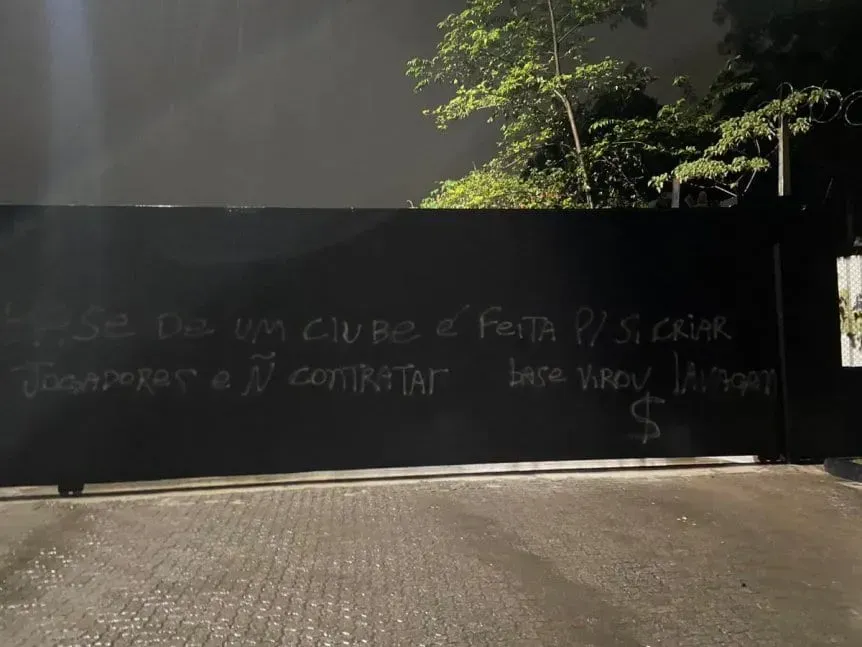 BASE De UM CLUBE é FeiTA P/ Si CRiAR
JOGADORES e Ñ CONTRATAR base VIROU lAVAGAM
$